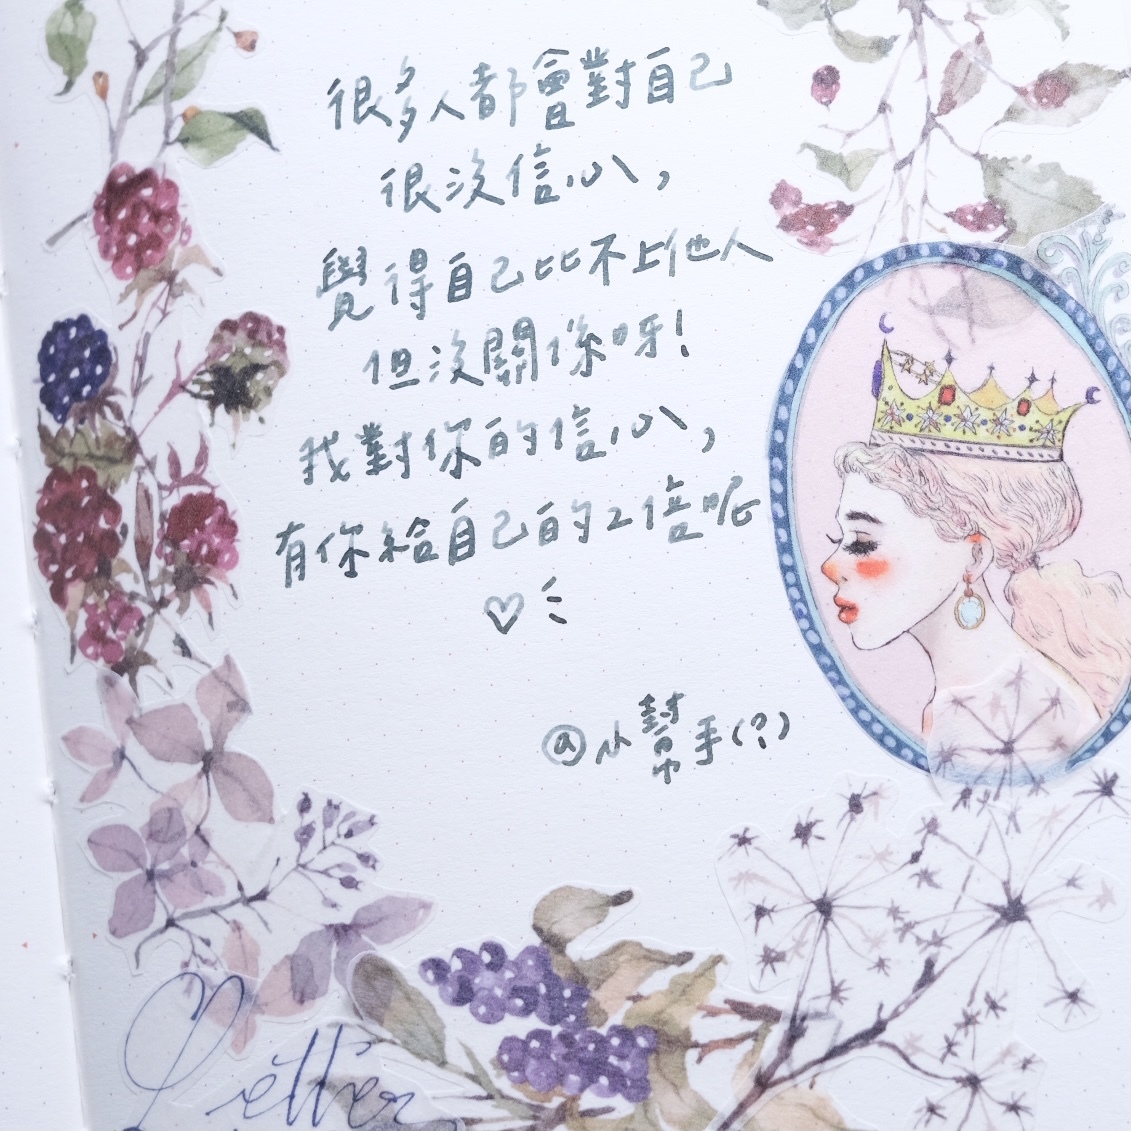 很多人都會對自己
很沒信心,
覺得自己比不上他人
但沒關係呀!
我對你的信心,
有你給自己的2倍呢
♡
@小幫手(?)
Letter